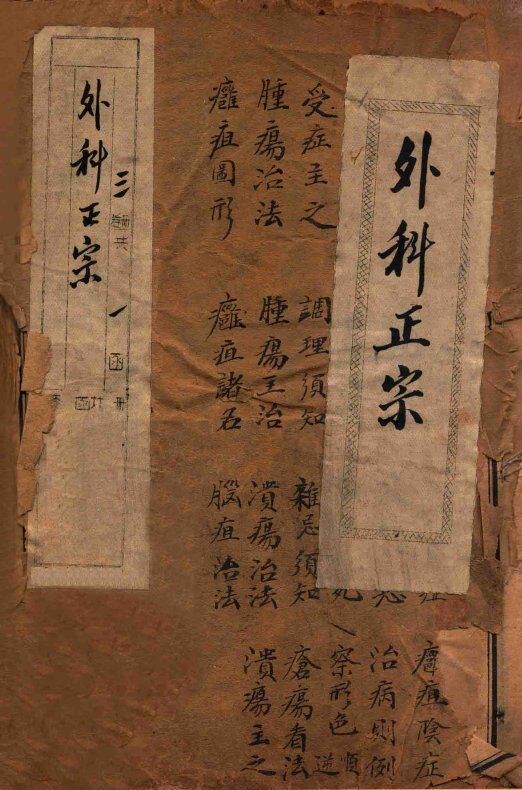 外科正宗
症
癰疽陰症
忌
治病則例
死
察形色順逆
受症主之
調理須知
雜忌須知
瘡瘍看法
腫瘍治法
腫瘍主治
潰瘍治法
潰瘍主之
癰疽圖形
癰疽諸名
腦疽治法
三
共
一函
外科正宗